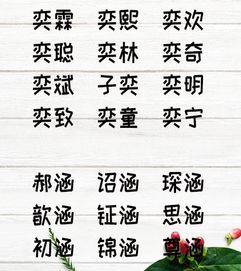 奕霖 奕熙 奕欢
奕聪 奕林 奕奇
奕斌 子奕 奕明
奕致 奕童 奕宁
郝涵 诏涵 琛涵
歆涵 钲涵 思涵
初涵 锦涵 尊涵